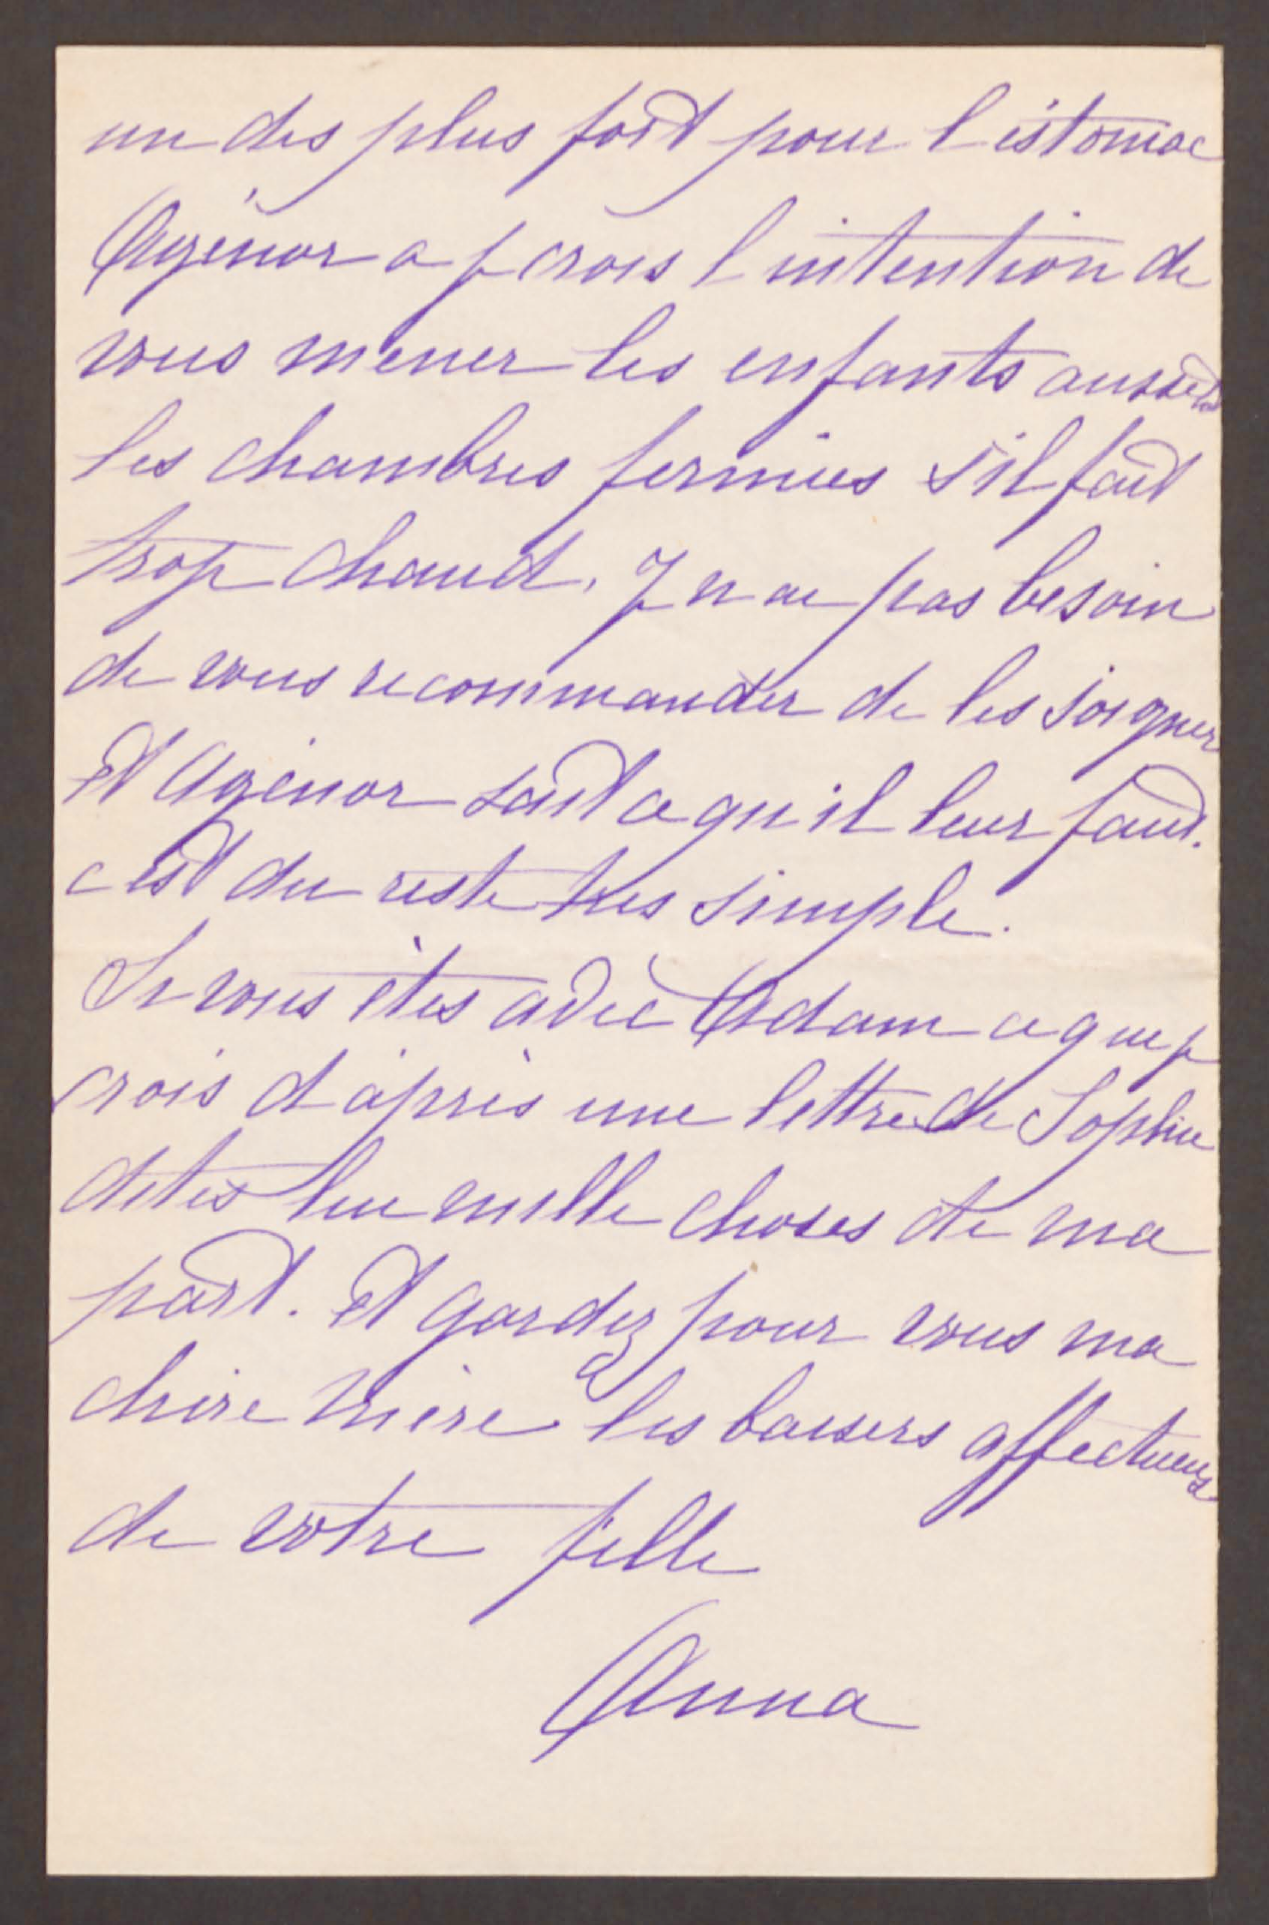 un des plus fort pour l'estomac
Agénor a je crois l'intention de
vous mener les enfants aussitôt
les chambres fermées s'il fait
trop chaud. Je n'ai pas besoin
de vous recommander de les soigner
et Agénor sait ce qu'il leur faut.
c'est du reste très simple.
Si vous êtes avec Adam ce que je
crois d'après une lettre de Sophie
dites lui mille choses de ma
part. Et gardez pour vous ma
chère mère les baisers affectueux
de votre fille
Anna